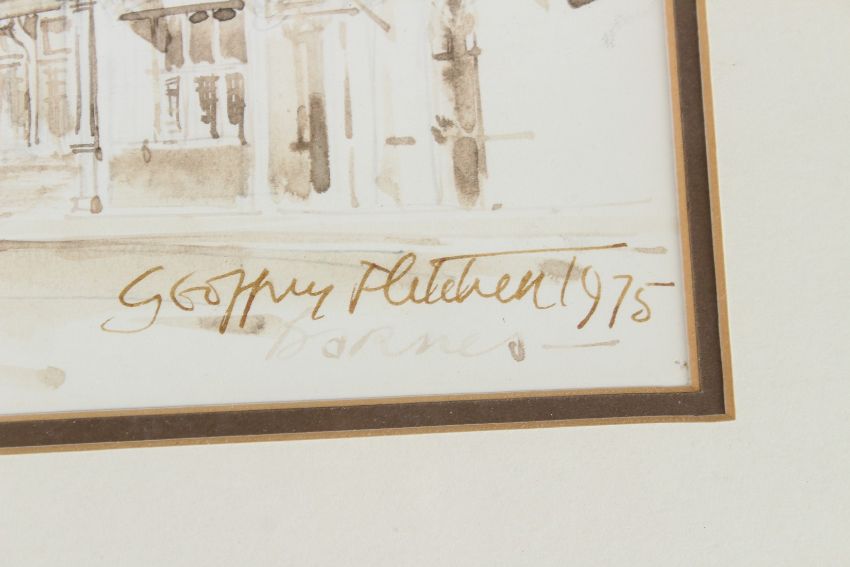 Geoffrey Fletcher 1975
Barnes